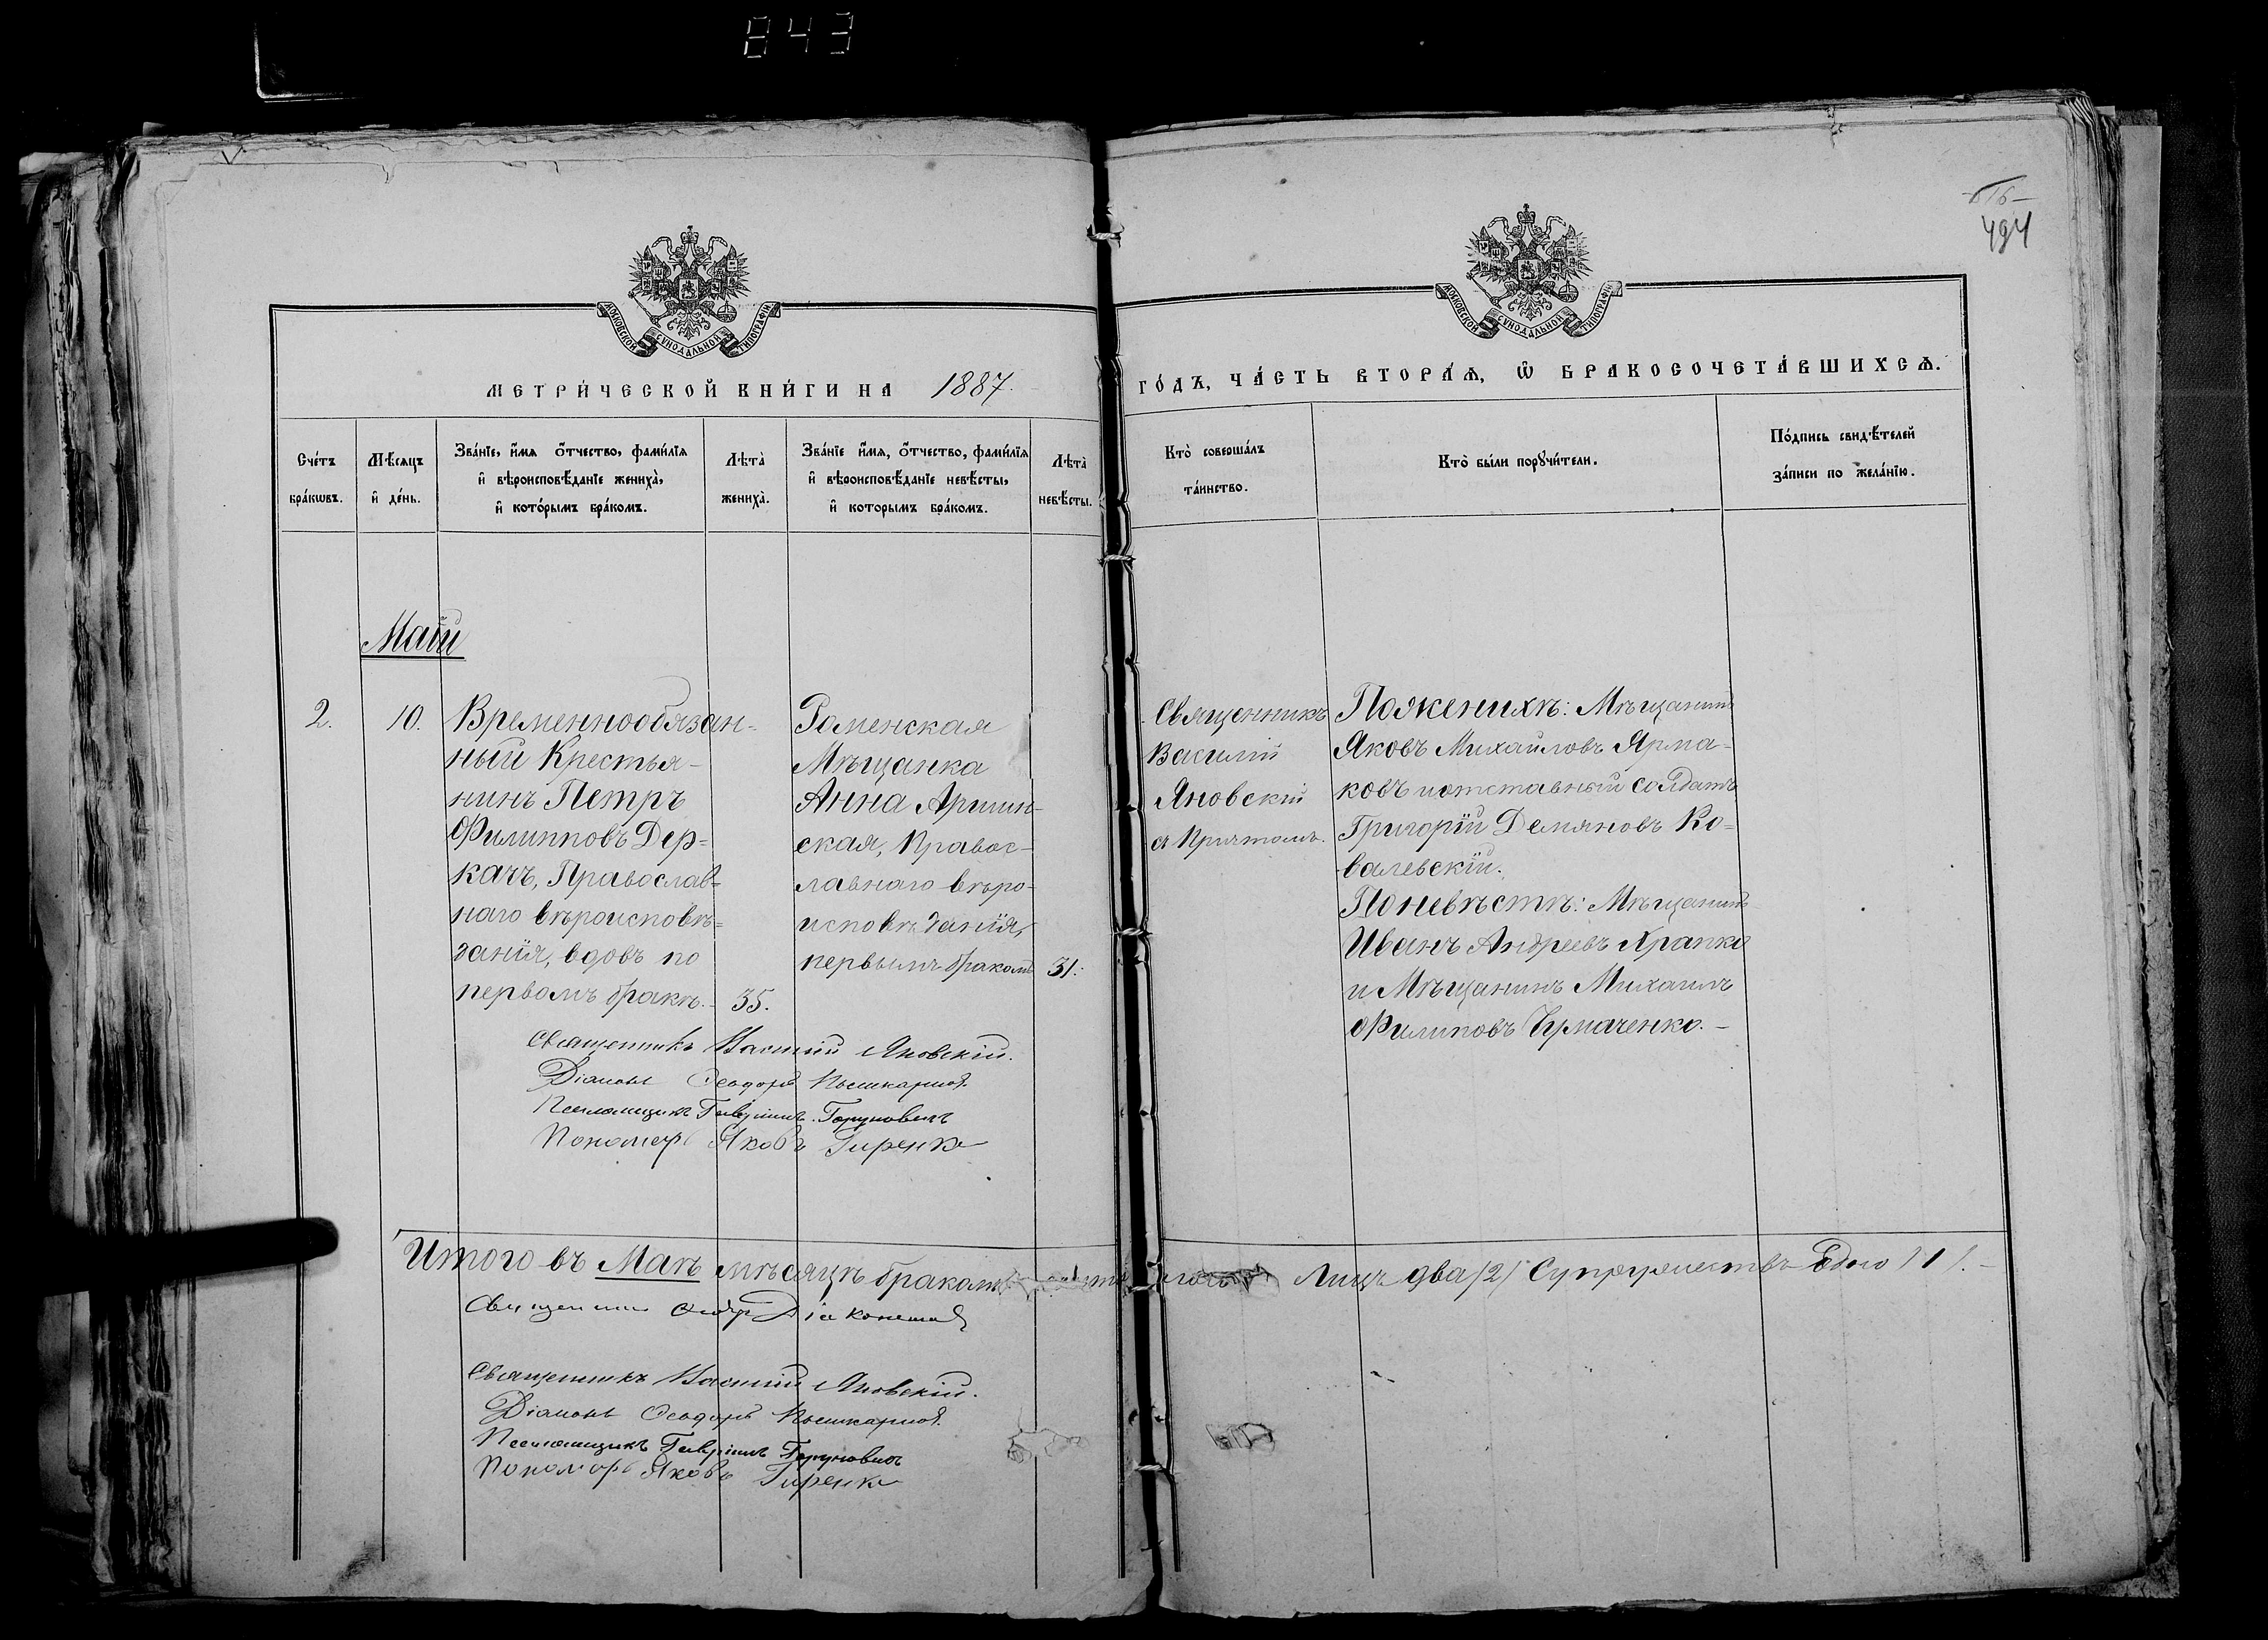 843
494
МОСКОВСКОЙ СѴНОДАЛЬНОЙ ТИПОГРАФІИ
МОСКОВСКОЙ СѴНОДАЛЬНОЙ ТИПОГРАФІИ
МЕТРИ́ЧЕСКОЙ КНИ́ГИ НА 1887. ГО́ДЪ, ЧА́СТЬ ВТОРА́Ѧ, Ѽ БРАКОСОЧЕТА́ВШИХСѦ.
Сче́тъ
бра́кѡвъ.
Мѣ́сяцъ
и҆ де́нь.
Зва́нїе, и҆́мя о҆́тчество, фами́лїя
и҆ вѣроисповѣ́данїе жениха̀,
и҆ кото́рымъ бра́комъ.
Лѣта̀
жениха̀.
Зва́нїе и҆́мя, о҆́тчество, фами́лїя
и҆ вѣроисповѣ́данїе невѣ́сты,
и҆ которымъ бра́комъ.
Лѣта̀
невѣ́сты.
Кто̀ соверша́лъ
та́инство.
Кто̀ бы́ли порꙋчи́тели.
По́дпись свидѣ́телей
за́писи по жела́нїю.
Маій
2.
10.
Временнообязан-
ный Крестья-
нинъ Петръ
Филипповъ Дер-
качъ, Православ-
наго вѣроисповѣ-
данія, вдовъ по
первомъ бракѣ.-
35.
Роменская
Мѣщанка
Анна
ская, Правос-
лавнаго вѣро-
исповѣданія,
первымъ бракомъ
31.
Священникъ
Василій
Яновскій
съ Причтомъ.
По женихѣ: Мѣщанинъ
Яковъ Михайловъ Ярма-
ковъ и отставный солдатъ
Григорій Демяновъ Ко-
валевскій.
По невѣстѣ: Мѣщанинъ
Иванъ Андреевъ Храпко
и Мѣщанинъ Михаилъ
Филиповъ
Священникъ Василій Яновскій.
Діаконъ Ѳеодоръ
Псаломщикъ Гавріилъ
Пономарь Яковъ Гиренко
Итого въ Маѣ мѣсяцѣ бракомъ Лицъ два /2/ Супружествъ Одно /1/.-
Священникъ
Священникъ Василій Яновскій.
Діаконъ Ѳеодоръ
Псаломщикъ Гавріилъ
Пономарь Яковъ Гиренко